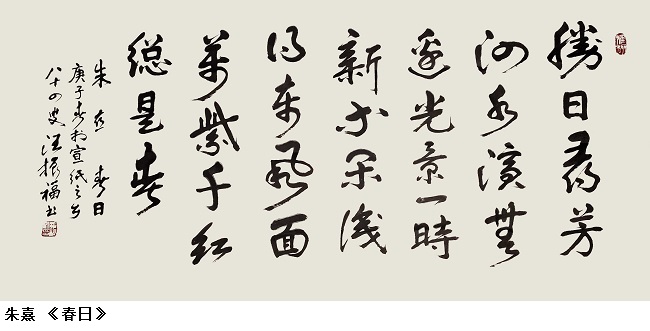 勝日尋芳
泗水濱無
邊光景一時
新等閑識
得東風面
萬紫千紅
總是春
朱熹 春日
庚子春於宣紙之乡
八十四叟汪振福书
朱熹 《春日》